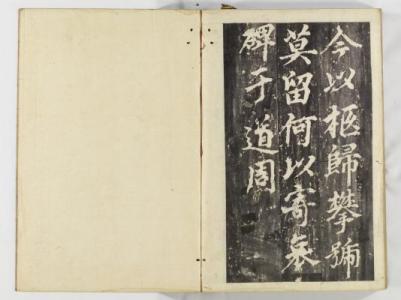 今以柩歸攀號
莫留何以寄哀
碑于道周